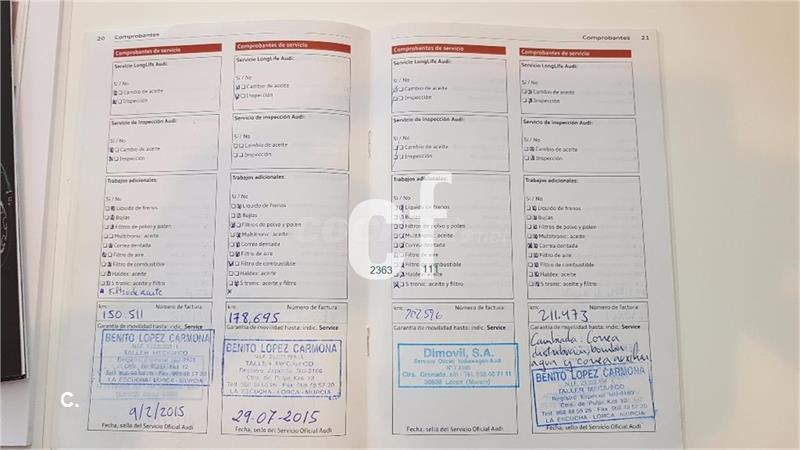 20 Comprobantes
Comprobantes de servicio
Servicio LongLife Audi:
Sí / No
Cambio de aceite
Inspección
Servicio de inspección Audi:
Sí / No
Cambio de aceite
Inspección
Trabajos adicionales:
Sí / No
Líquido de frenos
Bujías
Filtros de polvo y polen
Multitronic: aceite
Correa dentada
Filtro de aire
Filtro de combustible
Haldex: aceite
S tronic: aceite y filtro
km: Número de factura:
150.511
Garantía de movilidad hasta: indic. Service
BENITO LOPEZ CARMONA
TALLER MECANICO
LA ESCUCHA - LORCA - MURCIA
9/2/2015
Fecha, sello del Servicio Oficial Audi
Comprobantes de servicio
Servicio LongLife Audi:
Sí / No
Cambio de aceite
Inspección
Servicio de inspección Audi:
Sí / No
Cambio de aceite
Inspección
Trabajos adicionales:
Sí / No
Líquido de frenos
Bujías
Filtros de polvo y polen
Multitronic: aceite
Correa dentada
Filtro de aire
Filtro de combustible
Haldex: aceite
S tronic: aceite y filtro
km: Número de factura:
178,695
Garantía de movilidad hasta: indic. Service
BENITO LOPEZ CARMONA
TALLER MECANICO
LA ESCUCHA - LORCA - MURCIA
29-07-2015
Fecha, sello del Servicio Oficial Audi
Comprobantes 21
Comprobantes de servicio
Servicio LongLife Audi:
Sí / No
Cambio de aceite
Inspección
Servicio de inspección Audi:
Sí / No
Cambio de aceite
Inspección
Trabajos adicionales:
Sí / No
Líquido de frenos
Bujías
Filtros de polvo y polen
Multitronic: aceite
Correa dentada
Filtro de aire
Filtro de combustible
Haldex: aceite
S tronic: aceite y filtro
km: Número de factura:
Garantía de movilidad hasta: indic. Service
Dimovil, S.A.
Servicio Oficial Volkswagen-Audi
Ctra. Granada, s/n - Tel. 968 46 71 11
30800 Lorca (Murcia)
Fecha, sello del Servicio Oficial Audi
Comprobantes de servicio
Servicio LongLife Audi:
Sí / No
Cambio de aceite
Inspección
Servicio de inspección Audi:
Sí / No
Cambio de aceite
Inspección
Trabajos adicionales:
Sí / No
Líquido de frenos
Bujías
Filtros de polvo y polen
Multitronic: aceite
Correa dentada
Filtro de aire
Filtro de combustible
Haldex: aceite
S tronic: aceite y filtro
km: Número de factura:
211.473
Garantía de movilidad hasta: indic. Service
Cambiada: Correa
distribución, bomba
agua y correa auxiliar
BENITO LOPEZ CARMONA
TALLER MECANICO
Ctra. de Pulpí, Km. 12
LA ESCUCHA - LORCA - MURCIA
Fecha, sello del Servicio Oficial Audi
cf
2363 111
C.